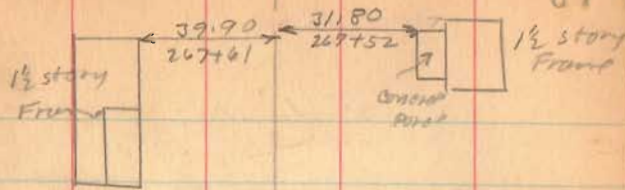 39.90
267+61
31.80
267+52
1½ story
Frame
1½ story
Frame
Concrete
Porch